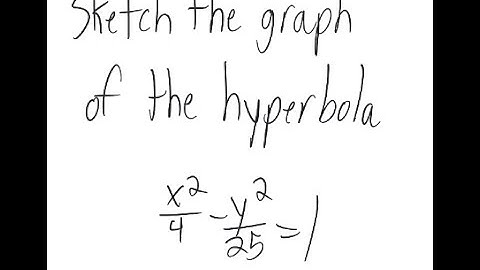 Sketch the graph
of the hyperbola
x²/4 - y²/25 = 1